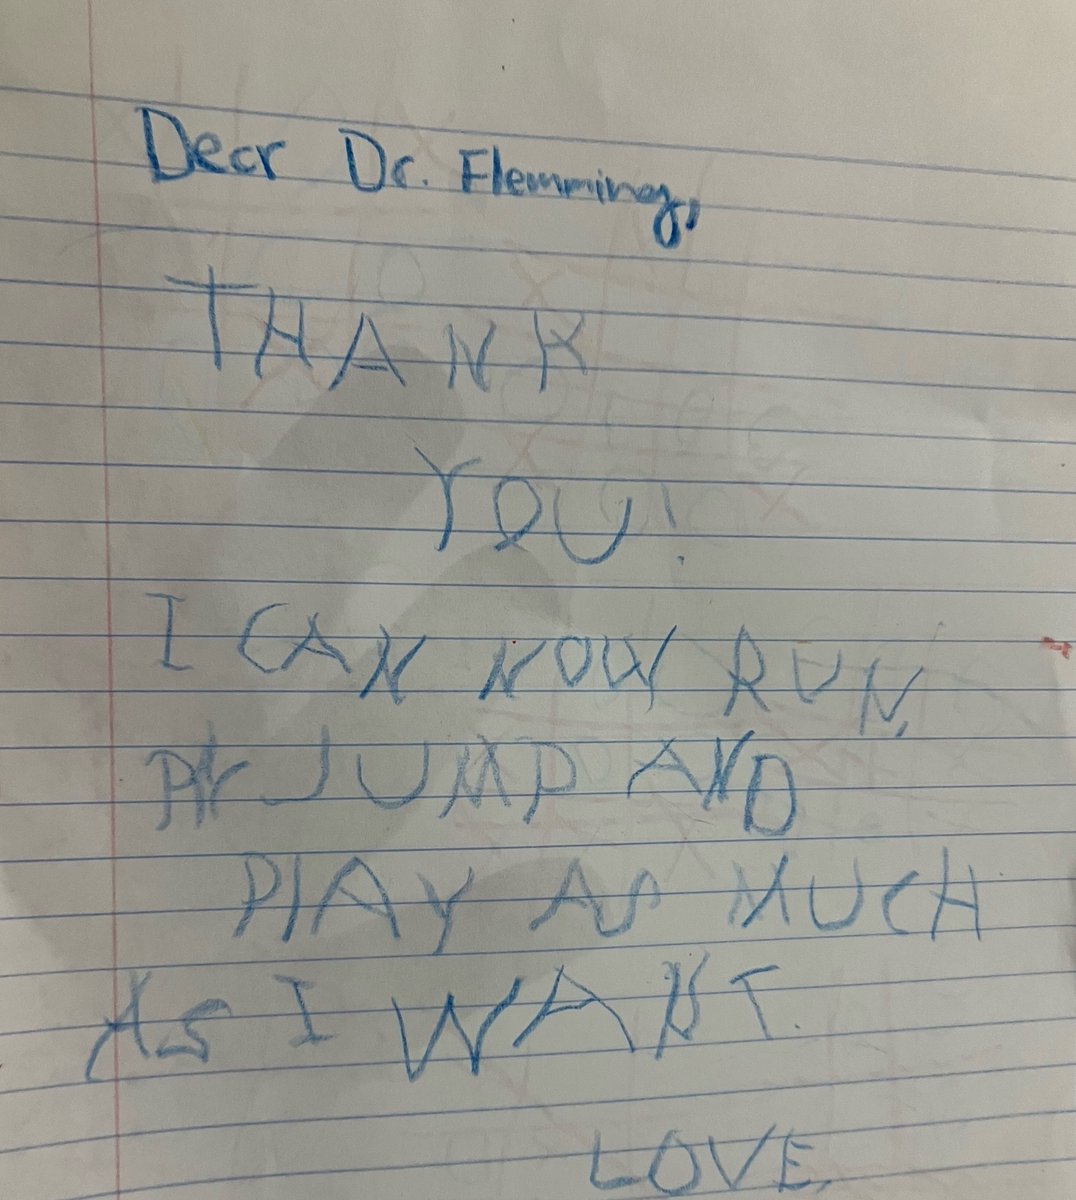 Dear Dr. Flemming,
THANK
YOU!
I CAN NOW RUN,
JUMP AND
PlAY AS MUCH
AS I WANT.
LOVE,